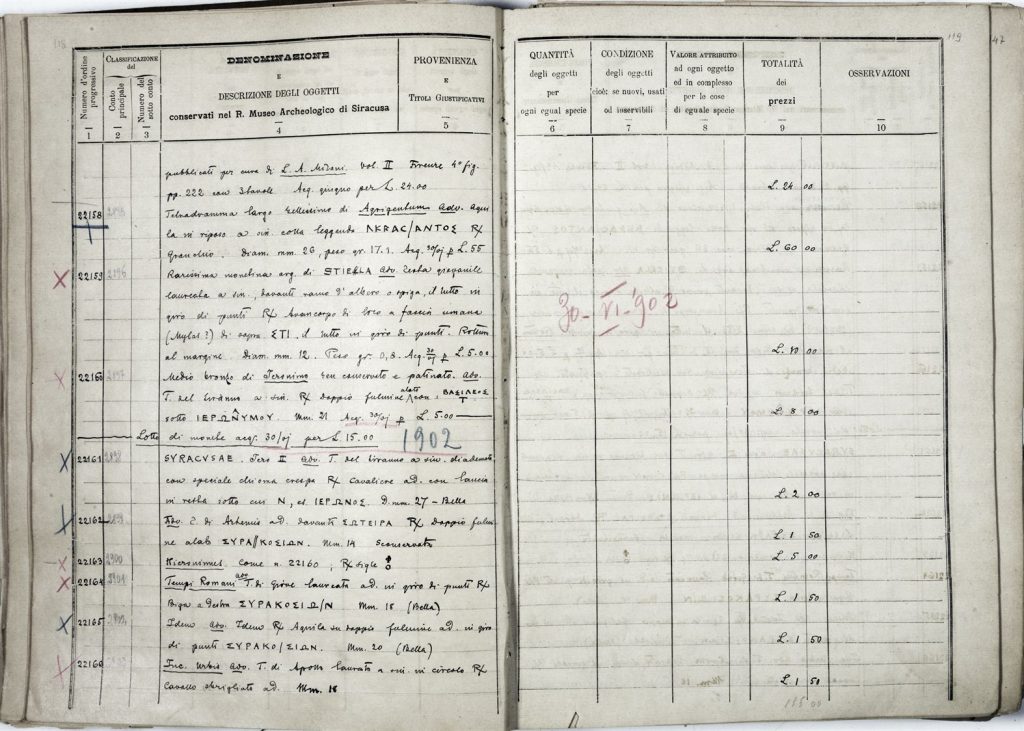 119
47
Numero d'ordine progressivo
1
CLASSIFICAZIONE del
Conto principale
2
Numero del sotto conto
3
DENOMINAZIONE
E
DESCRIZIONE DEGLI OGGETTI
conservati nel R. Museo Archeologico di Siracusa
4
PROVENIENZA
E
TITOLI GIUSTIFICATIVI
5
QUANTITÀ
degli oggetti
per
ogni egual specie
6
CONDIZIONE
degli oggetti
cioè: se nuovi, usati
od inservibili
7
VALORE ATTRIBUITO
ad ogni oggetto
ed in complesso
per le cose
di eguale specie
8
TOTALITÀ
dei
prezzi
9
OSSERVAZIONI
10
pubblicati per cura di L. A. Milani. Vol. II Firenze 4° fig.
pp. 222 con 3 tavole Acq. giugno per L. 24.00
L. 24 00
22158 Tetradramma largo bellissimo di Agrigentum Adv. Aqui
la in riposo a sin. colla leggenda AKRAC/ANTOΣ R/
Granchio. Diam. mm. 26, peso gr. 17.1. Acq. 30/vj p L. 55
L. 60 00
22159 2196 Rarissima monetina arg. di ΣTIEΛA Adv. Testa giovanile
laureata a sin., davanti ramo d'albero o spiga, il tutto in
giro di punti R/ Avancorpo di toro a faccia umana
(Mylas?) di sopra ΣTI, il tutto in giro di punti. Rottura
al margine. Diam. mm. 12. Peso gr. 0,8. Acq. 30/vj p L. 5.00
L. 40 00
30. VI. 902
22160 2197 Medio bronzo di Jeronimo ben conservato e patinato. Adv.
T. del tiranno a sin. R/ Doppio fulmine alato con, BAΣIΛEOΣ
sotto IEPΩNYMOY. Mm. 21 Acq. 30/vj p L. 5.00
L. 8 00
Lotto di monete acq. 30/vj per L. 15.00 1902
22161 2198 SYRACVSAE. Jero II Adv. T. del tiranno a sin. diademata
con speciale chioma crespa R/ Cavaliere a d. con lancia
in resta sotto cui N, es. IEPΩNOΣ. D. mm. 27 - Bella
L. 2 00
22162 2199 Adv. T. di Artemis a d. davanti ΣΩTEIPA R/ Doppio fulmi
ne alato ΣYPA/KOΣIΩN. Mm. 14 Sconservata
L. 1 50
22163 2200 Hieronimus Come n. 22160; R/ sigle
L. 5 00
22164 2201 Tempi Romani Adv. T. di Giove laureata a d. in giro di punti R/
Biga a destra ΣYPAKOΣIΩ/N Mm. 18 (Bella)
L. 1 50
22165 Idem Adv. Idem R/ Aquila su doppio fulmine a d. in giro
di punti ΣYPAKO/ΣIΩN. Mm. 20 (Bella)
L. 1 50
22166 Inc. Urbis Adv. T. di Apollo laureato a sin. in circolo R/
Cavallo sbrigliato a d. Mm. 18
L. 1 50